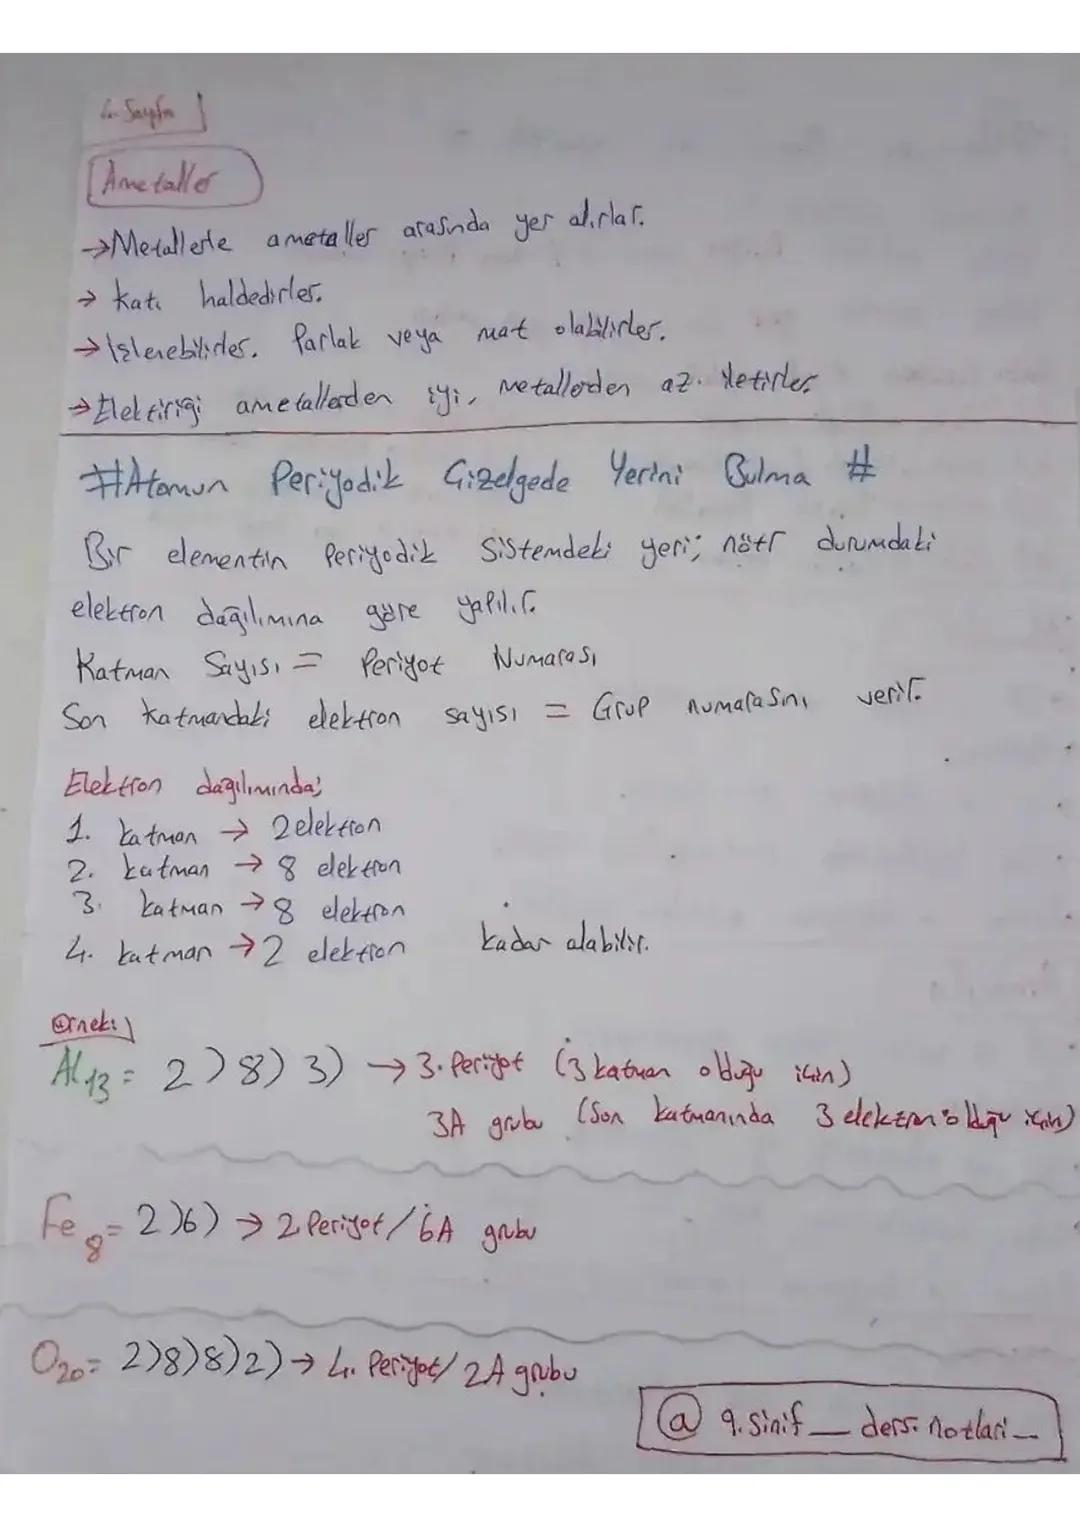 4. Sayfa
Ametaller
→Metallerle ametaller arasında yer alırlar.
→ katı haldedirler.
→ İşlenebilirler. Parlak veya mat olabilirler.
→Elektiriği ametallerden iyi, metallerden az. iletirler.
#Atomun Periyodik Çizelgede Yerini Bulma #
Bir elementin Periyodik Sistemdeki yeri; nötr durumdaki
elektron dağılımına göre yapılır.
Katman Sayısı = Periyot Numarası
Son katmandaki elektron sayısı = Grup numarasını verir.
Elektron dağılımında;
1. katman → 2 elektron
2. katman → 8 elektron
3. katman → 8 elektron
4. katman → 2 elektron kadar alabilir.
Örnek:
Al13 = 2)8)3) → 3. Periyot (3 katman olduğu için)
3A grubu (Son katmanında 3 elektron olduğu için)
Fe8 = 2)6) → 2 Periyot / 6A grubu
O20 = 2)8)8)2) → 4. Periyot/ 2A grubu
@ 9.sinif_ders.notlari_